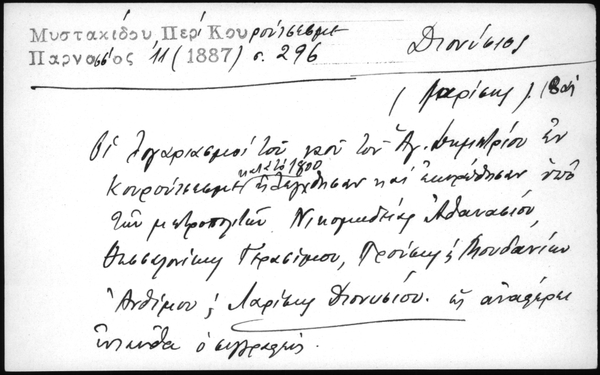 Μυστακίδου, Περί Κουρούτσεσμε
Παρνασσός 11 (1887) σ. 296
Διονύσιος
(Λαρίσης)
Οἱ λογαριασμοί τοῦ ναοῦ τοῦ Ἁγ. Δημητρίου ἐν
κατά τό 1800
Κουρούτσεσμε ἠλέγχθησαν καί ἐκυρώθησαν ὑπό
τῶν μητροπολιτῶν Νικομηδείας Ἀθανασίου,
Θεσσαλονίκης Γερασίμου, Προύσης & Μουδανίων
Ἀνθίμου & Λαρίσης Διονυσίου. ὡς ἀναφέρει
ἐνταῦθα ὁ συγγραφεύς.